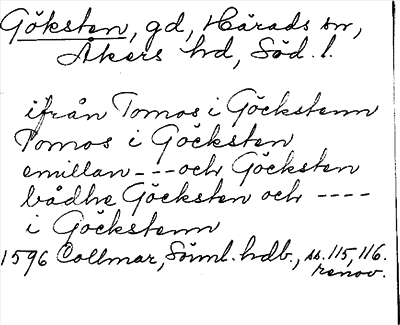 Göksten, gd, Härads sn,
Åkers hd, Söd. l.
ifrån Tomos i Göckstenn
Tomos i Göcksten
emillan --- och Göcksten
bådhe Göcksten och ----
i Göckstenn
1596 Collmar, Sörml. hdb., ss. 115, 116.
renov.